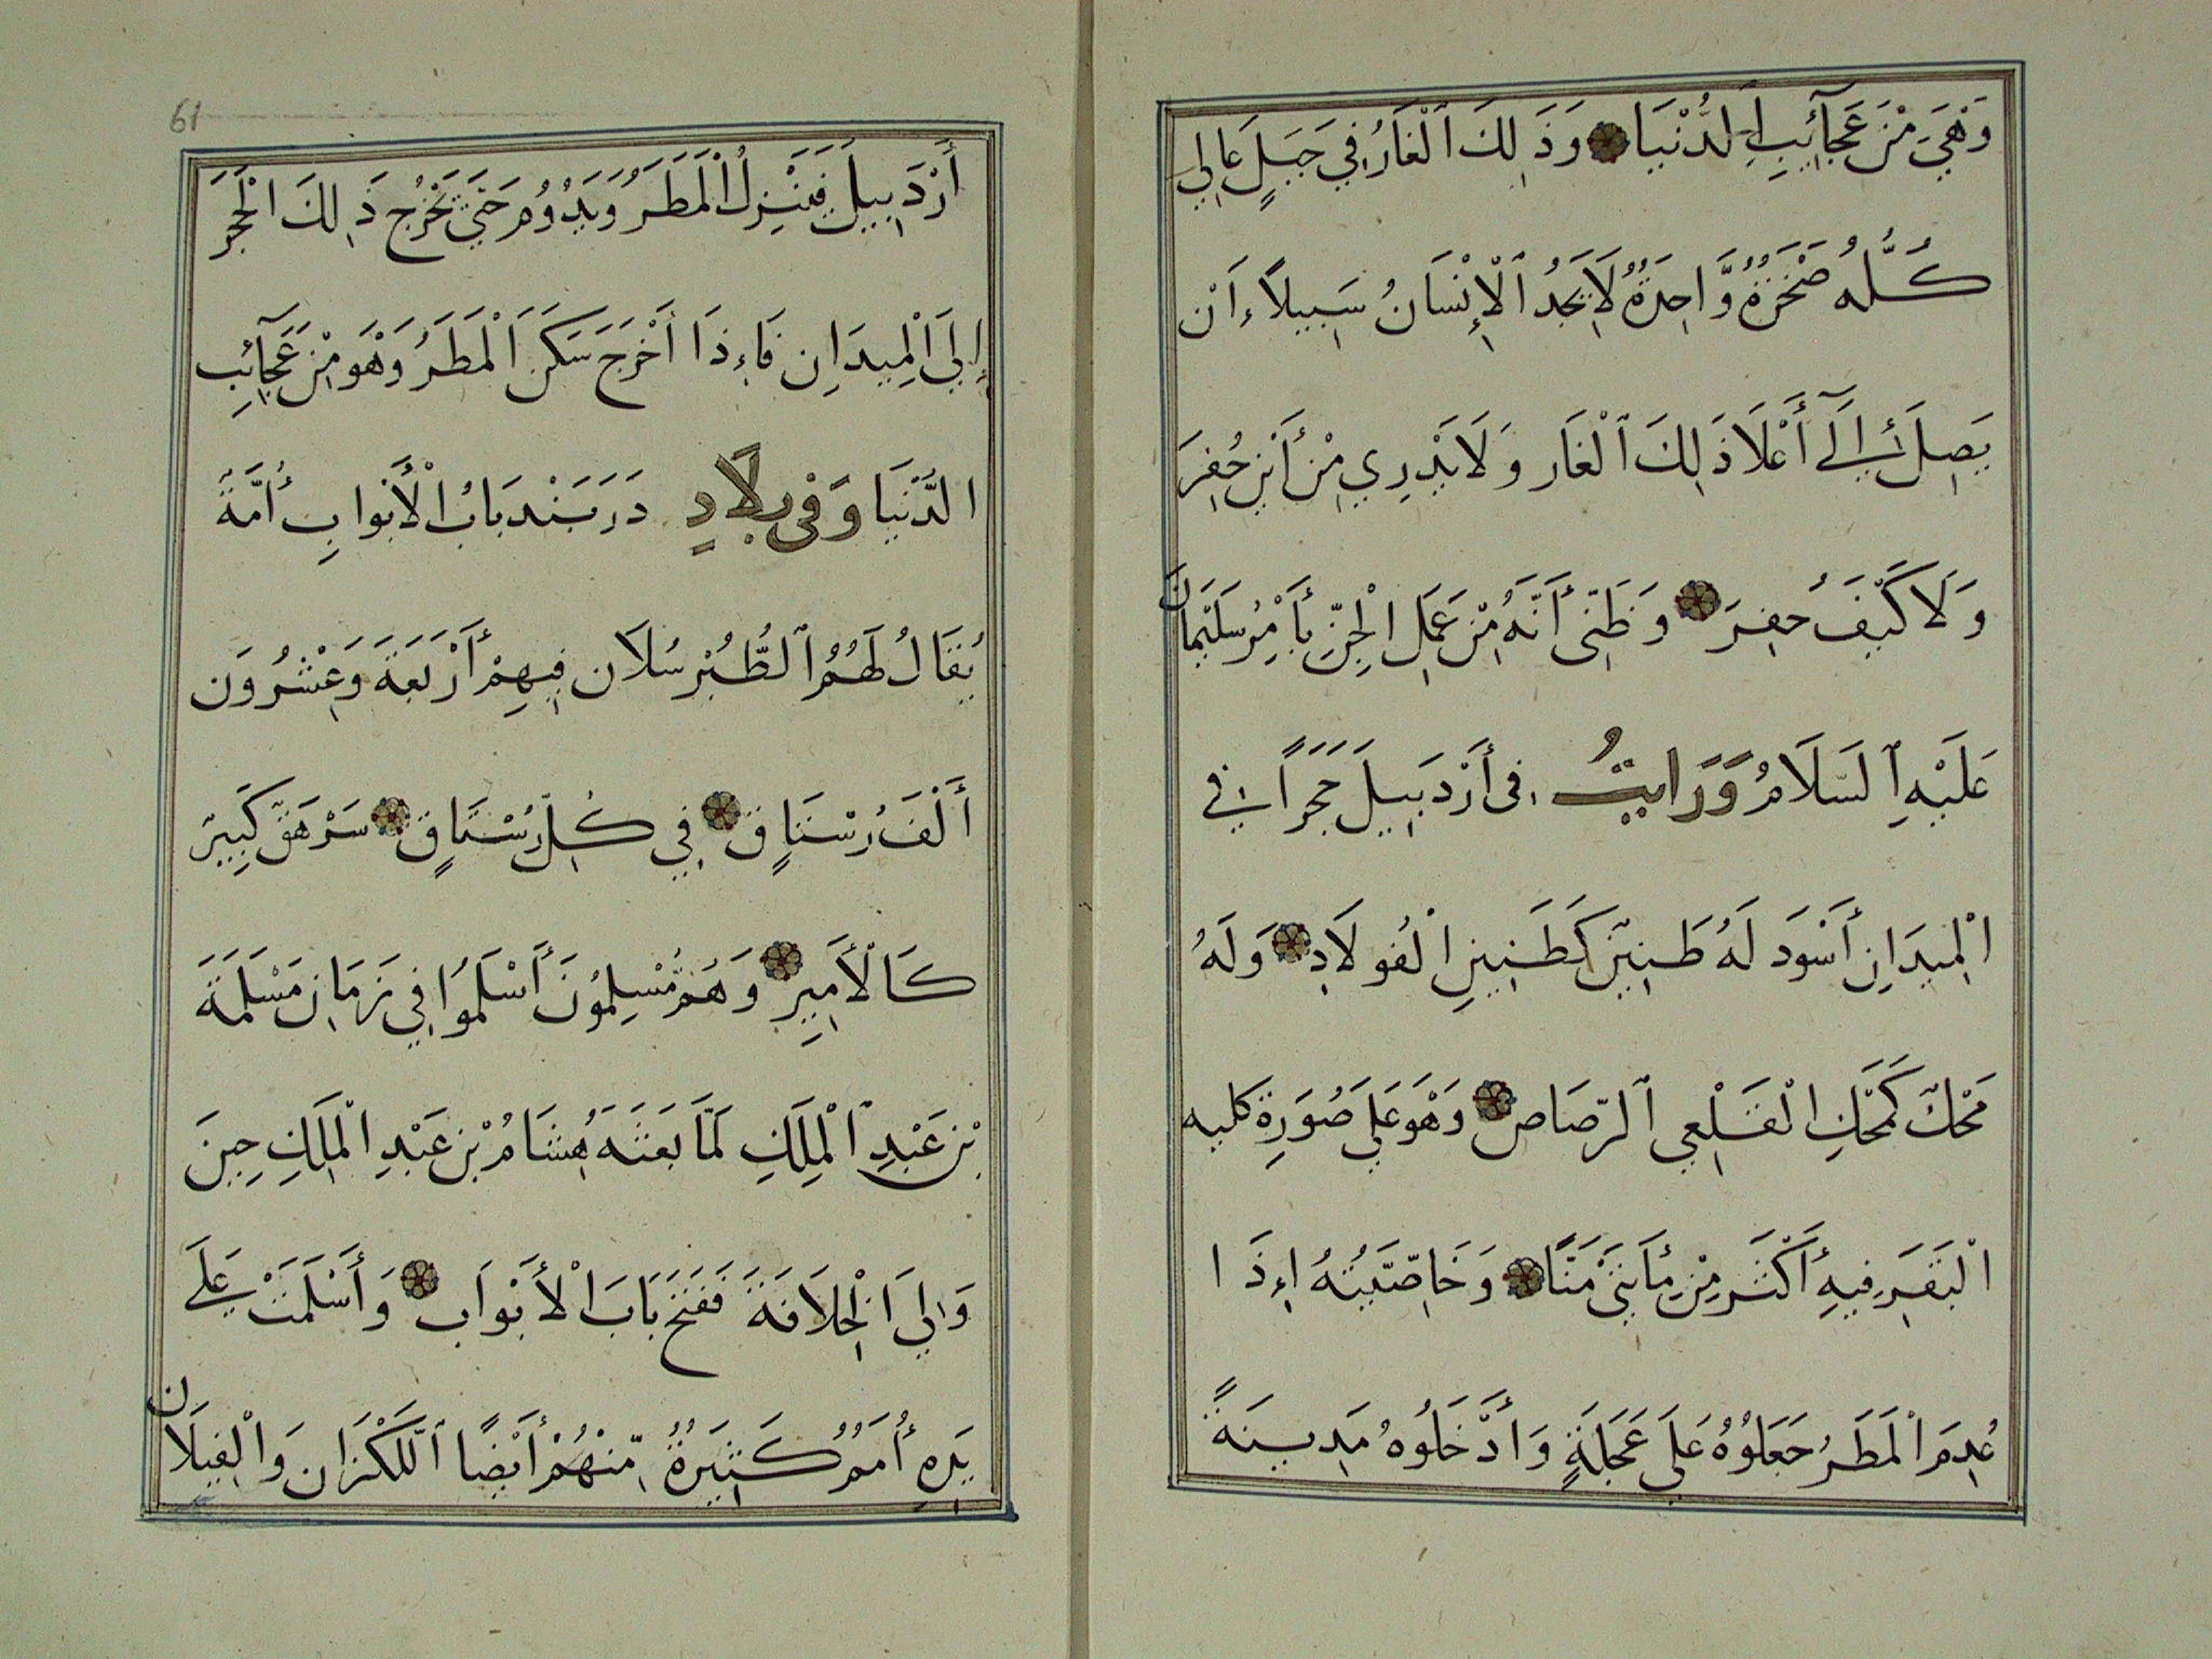 وَهْيَ مِنْ عَجَآئِبِ الدُّنْيَا وَذَلِكَ ٱلْغَارُ فِي جَبَلٍ عَالِي
كُلُّهُ صَخْرَةٌ وَّاحِدَةٌ لَا يَجِدُ ٱلْإِنْسَانُ سَبِيلاً ءَان
يَصِلَ إِلَىٓ أَعْلَا ذَلِكَ ٱلْغَارِ وَلَا يَدْرِي مِنْ أَيْنِ حُفِرَ
وَلَا كَيْفَ حُفِرَ وَظَنِّى أَنَّهُ مِنْ عَمَلِ الْجِنِّ بِأَمْرِ سُلَيْمَانَ
عَلَيْهِ ٱلسَّلَامُ وَرَايتُ فِى أَرْدَبِيلَ حَجَراً فِي
الْمِيدَانِ أَسْوَدَ لَهُ طَنِينٌ كَطَنِينِ الْفُولَاذِ وَلَهُ
مَحَكٌّ كَمَحَكِّ الْقَلْعِي ٱلرَّصَاصِ وَهْوَ عَلَي صُورَةِ كلیه
الْبَقَرِ فِيهِ أَكْثَر مِنْ مِأَيتَيْ مَنًّا وَخَاصِّيَّتُهُ اءِذَا
عُدِمَ الْمَطَرُ جَعَلُوْهُ عَلَي عَجَلَةٍ وَأَدْخَلُوهُ مَدِينَةً
61
أَرْدَبِيلَ فَيَنْزِلُ الْمَطَرُ وَيَدُوُمُ حَتَّيَ يَخْرُج ذَلِكَ الْحَجَرَ
إِلَيَ الْمِيدَانِ فَاءِذَا أَخْرَجَ سَكَنَ الْمَطَرُ وَهْوَ مِنْ عَجَآئِبِ
الدُّنْيَا وَفِى بِلَادٍ دَرَبَنْد بَابُ الْأَبْوابِ أُمَّةً
يُقَالُ لَهُمُ ٱلطُّبُرْسُلَان فِيهِمْ أَرْبَعَةَ وَعِشْرُون
أَلْفَ رُسْتَاقٍ فِي كُلِّ رُسْتَاقٍ سَرْهَقٌ كَبِيرٌ
كَالْأَمِيرِ وَهُمْ مُّسْلِمُونَ أَسْلَمُوا فِي زَمَانِ مَسْلَمَةَ
بْنِ عَبْدِ ٱلْمَلِكِ لَمَّا بَعَثَهُ هِشَامُ بْنِ عَبْدِ الْمَلِكِ حِينَ
وَلِيَ الْخِلَافَةَ فَفَتَحَ بَابَ الْأَبْوَاب وَأَسْلَمَتْ عَلَي
يَدِهِ أُمَمٌ كَثِيرَةٌ مِّنْهُمْ أَيْضًا ٱللَّكْزَان وَالْفِيلَان